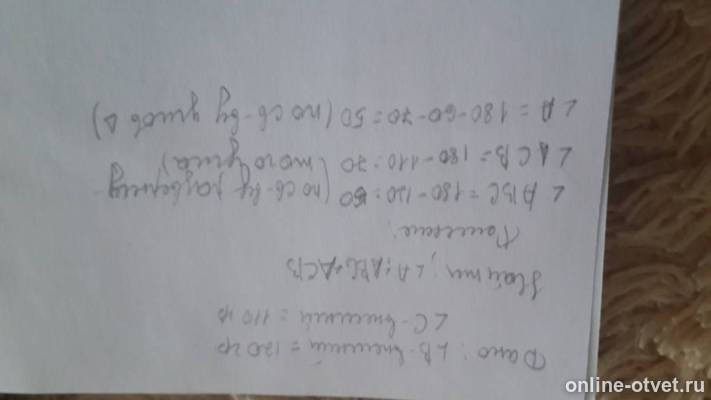 Дано: ∠B-внешний = 120 гр
∠C-внешний = 110 гр
Найти: ∠A; ABC; ACB
Решение:
∠ABC = 180-120=60 (по св-ву развёрну-
∠ACB = 180-110=70 (того угла)
∠A = 180-60-70=50 (по св-ву углов Δ)
online-otvet.ru